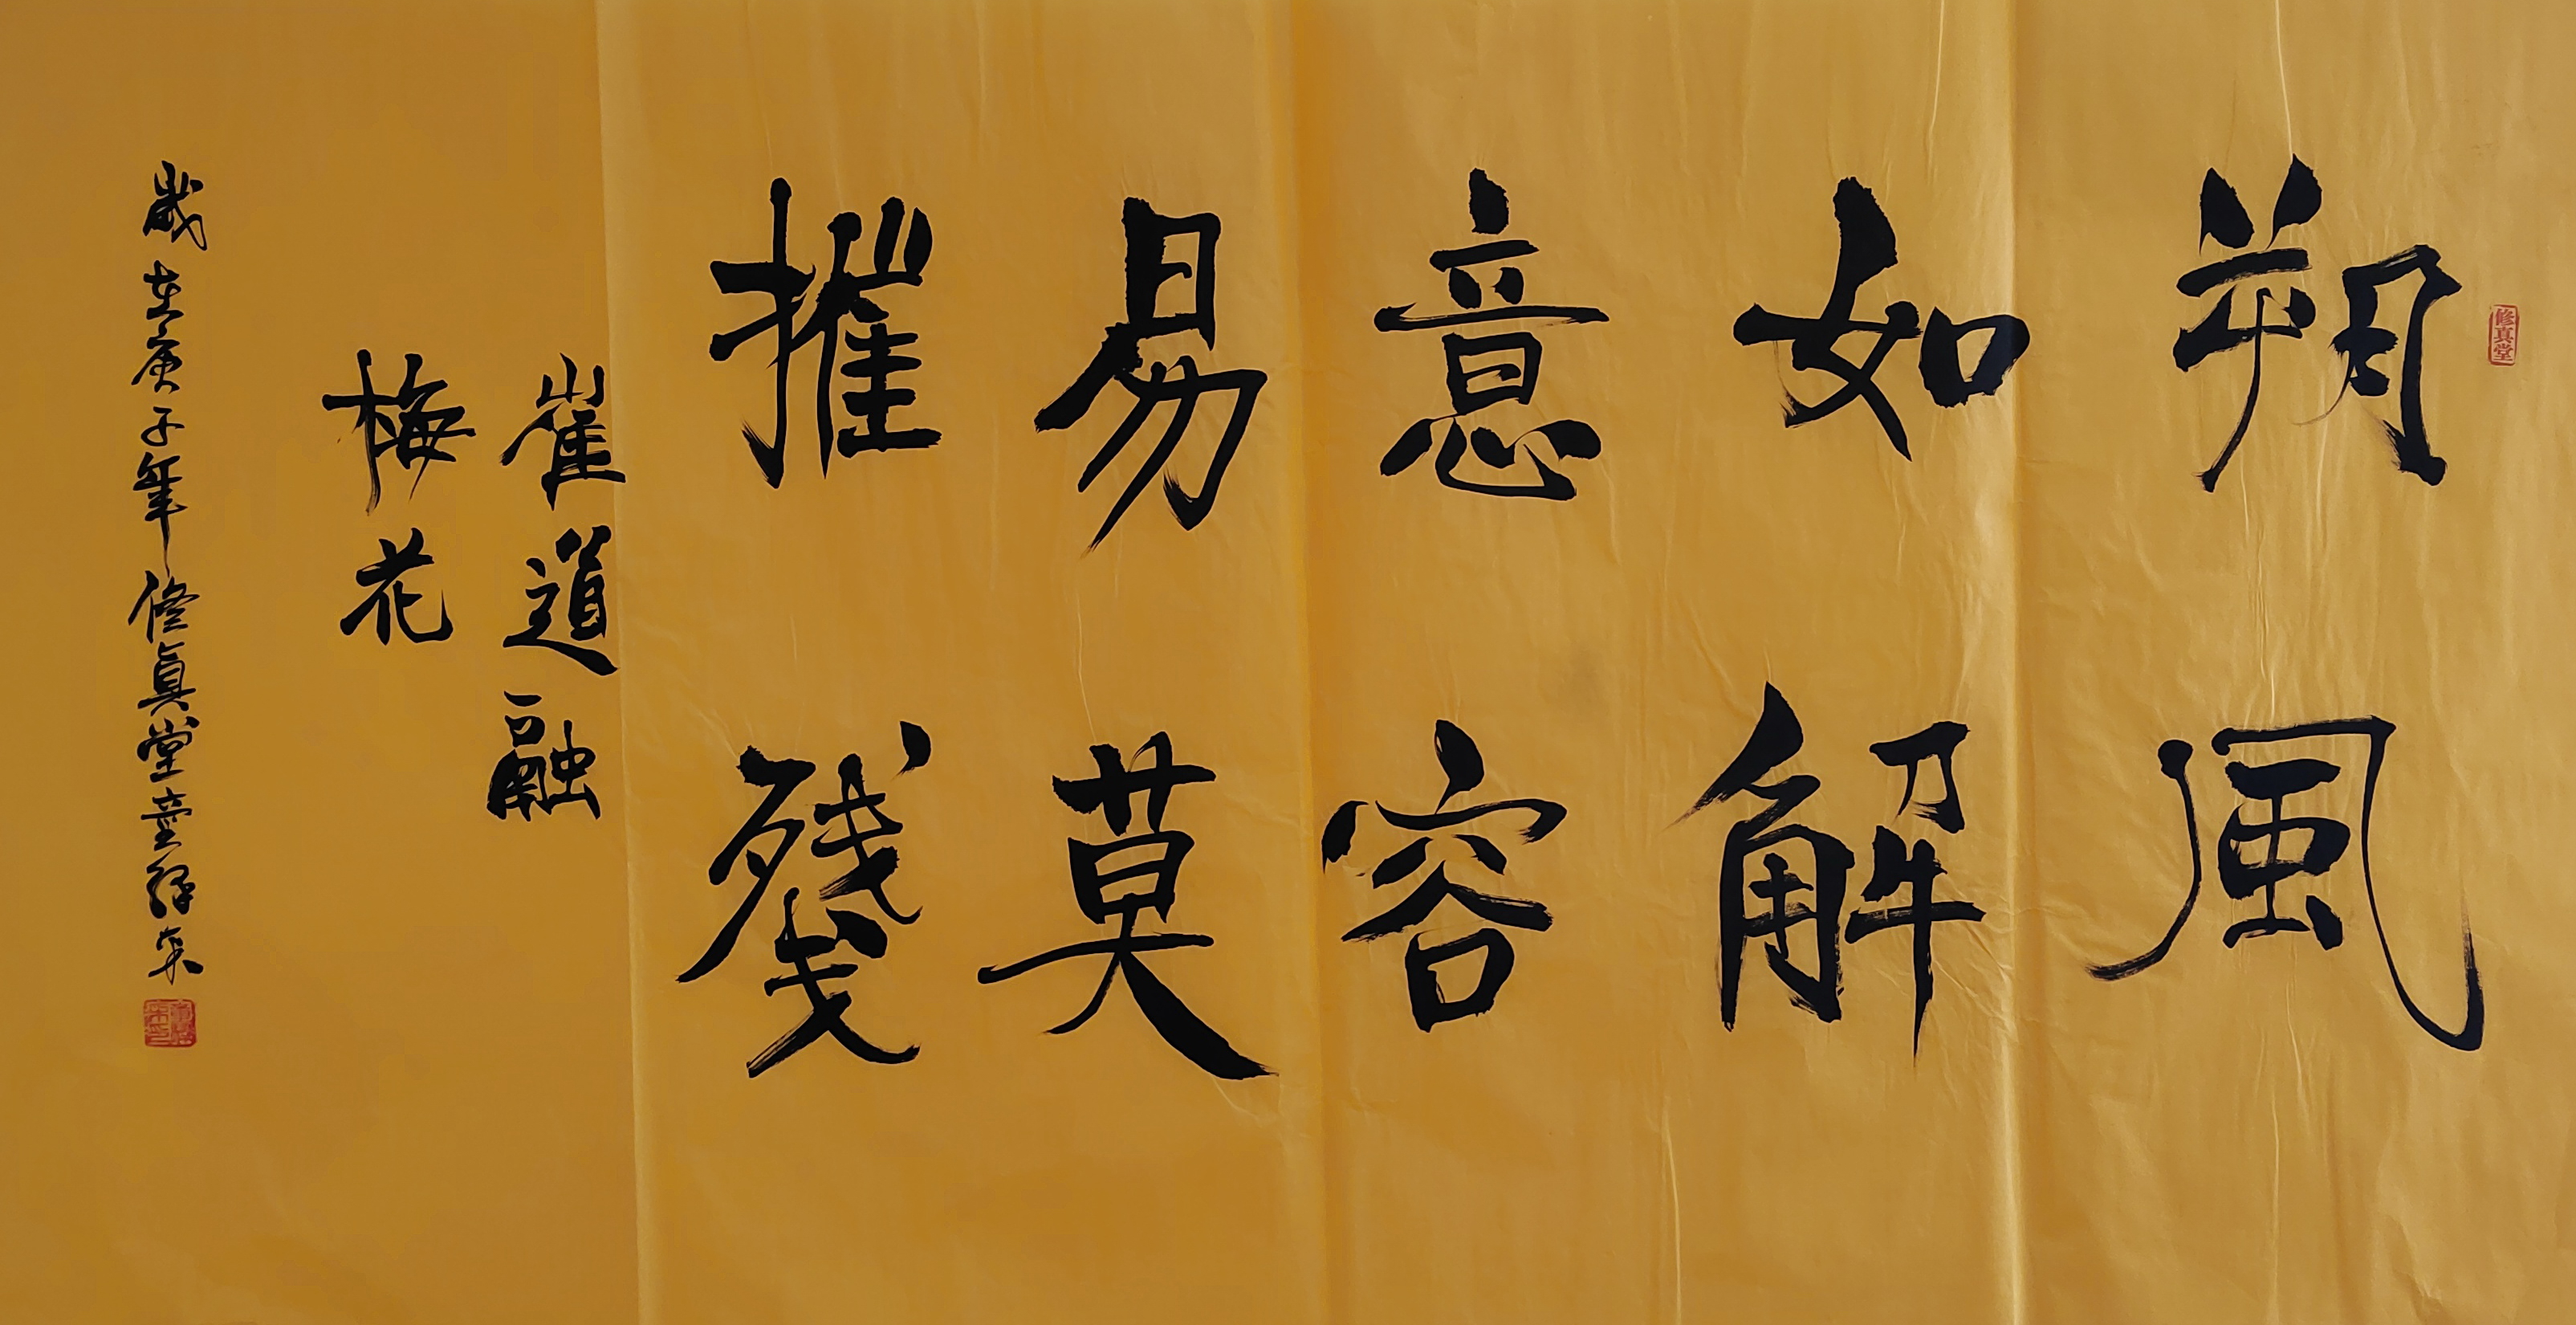 修真堂
朔風
如解
意容
易莫
摧殘
崔道融
梅花
歲在庚子年修真堂童釋來